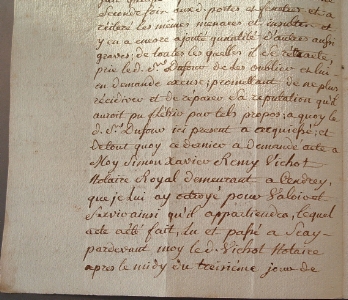 seconde fois aux portes et fenetres et a
réiteré les mêmes menaces et insultes et
y en a encore ajouté quantité d'autres aussi
graves, de toutes lesquelles il se rétracte,
prie led. Sr. Dufour de les oublier et lui
en demande excuse; promettant de ne plus
recidiver et de réparer sa reputation qu'il
auroit pu flétrir par tels propos; a quoy le
d. Sr. Dufour ici present a acquiescé; et
de tout quoy ce dernier a demandé acte a
Moy Simon Xavier Remy Vichot
Notaire Royal demeurant a
que je lui ay octroyé pour valoir et
servir ainsi qu'il appartiendra, lequel
acte a été fait, lu et passé a Scay
pardevant moy led. Vichot Notaire
apres le midy du treisieme jour de